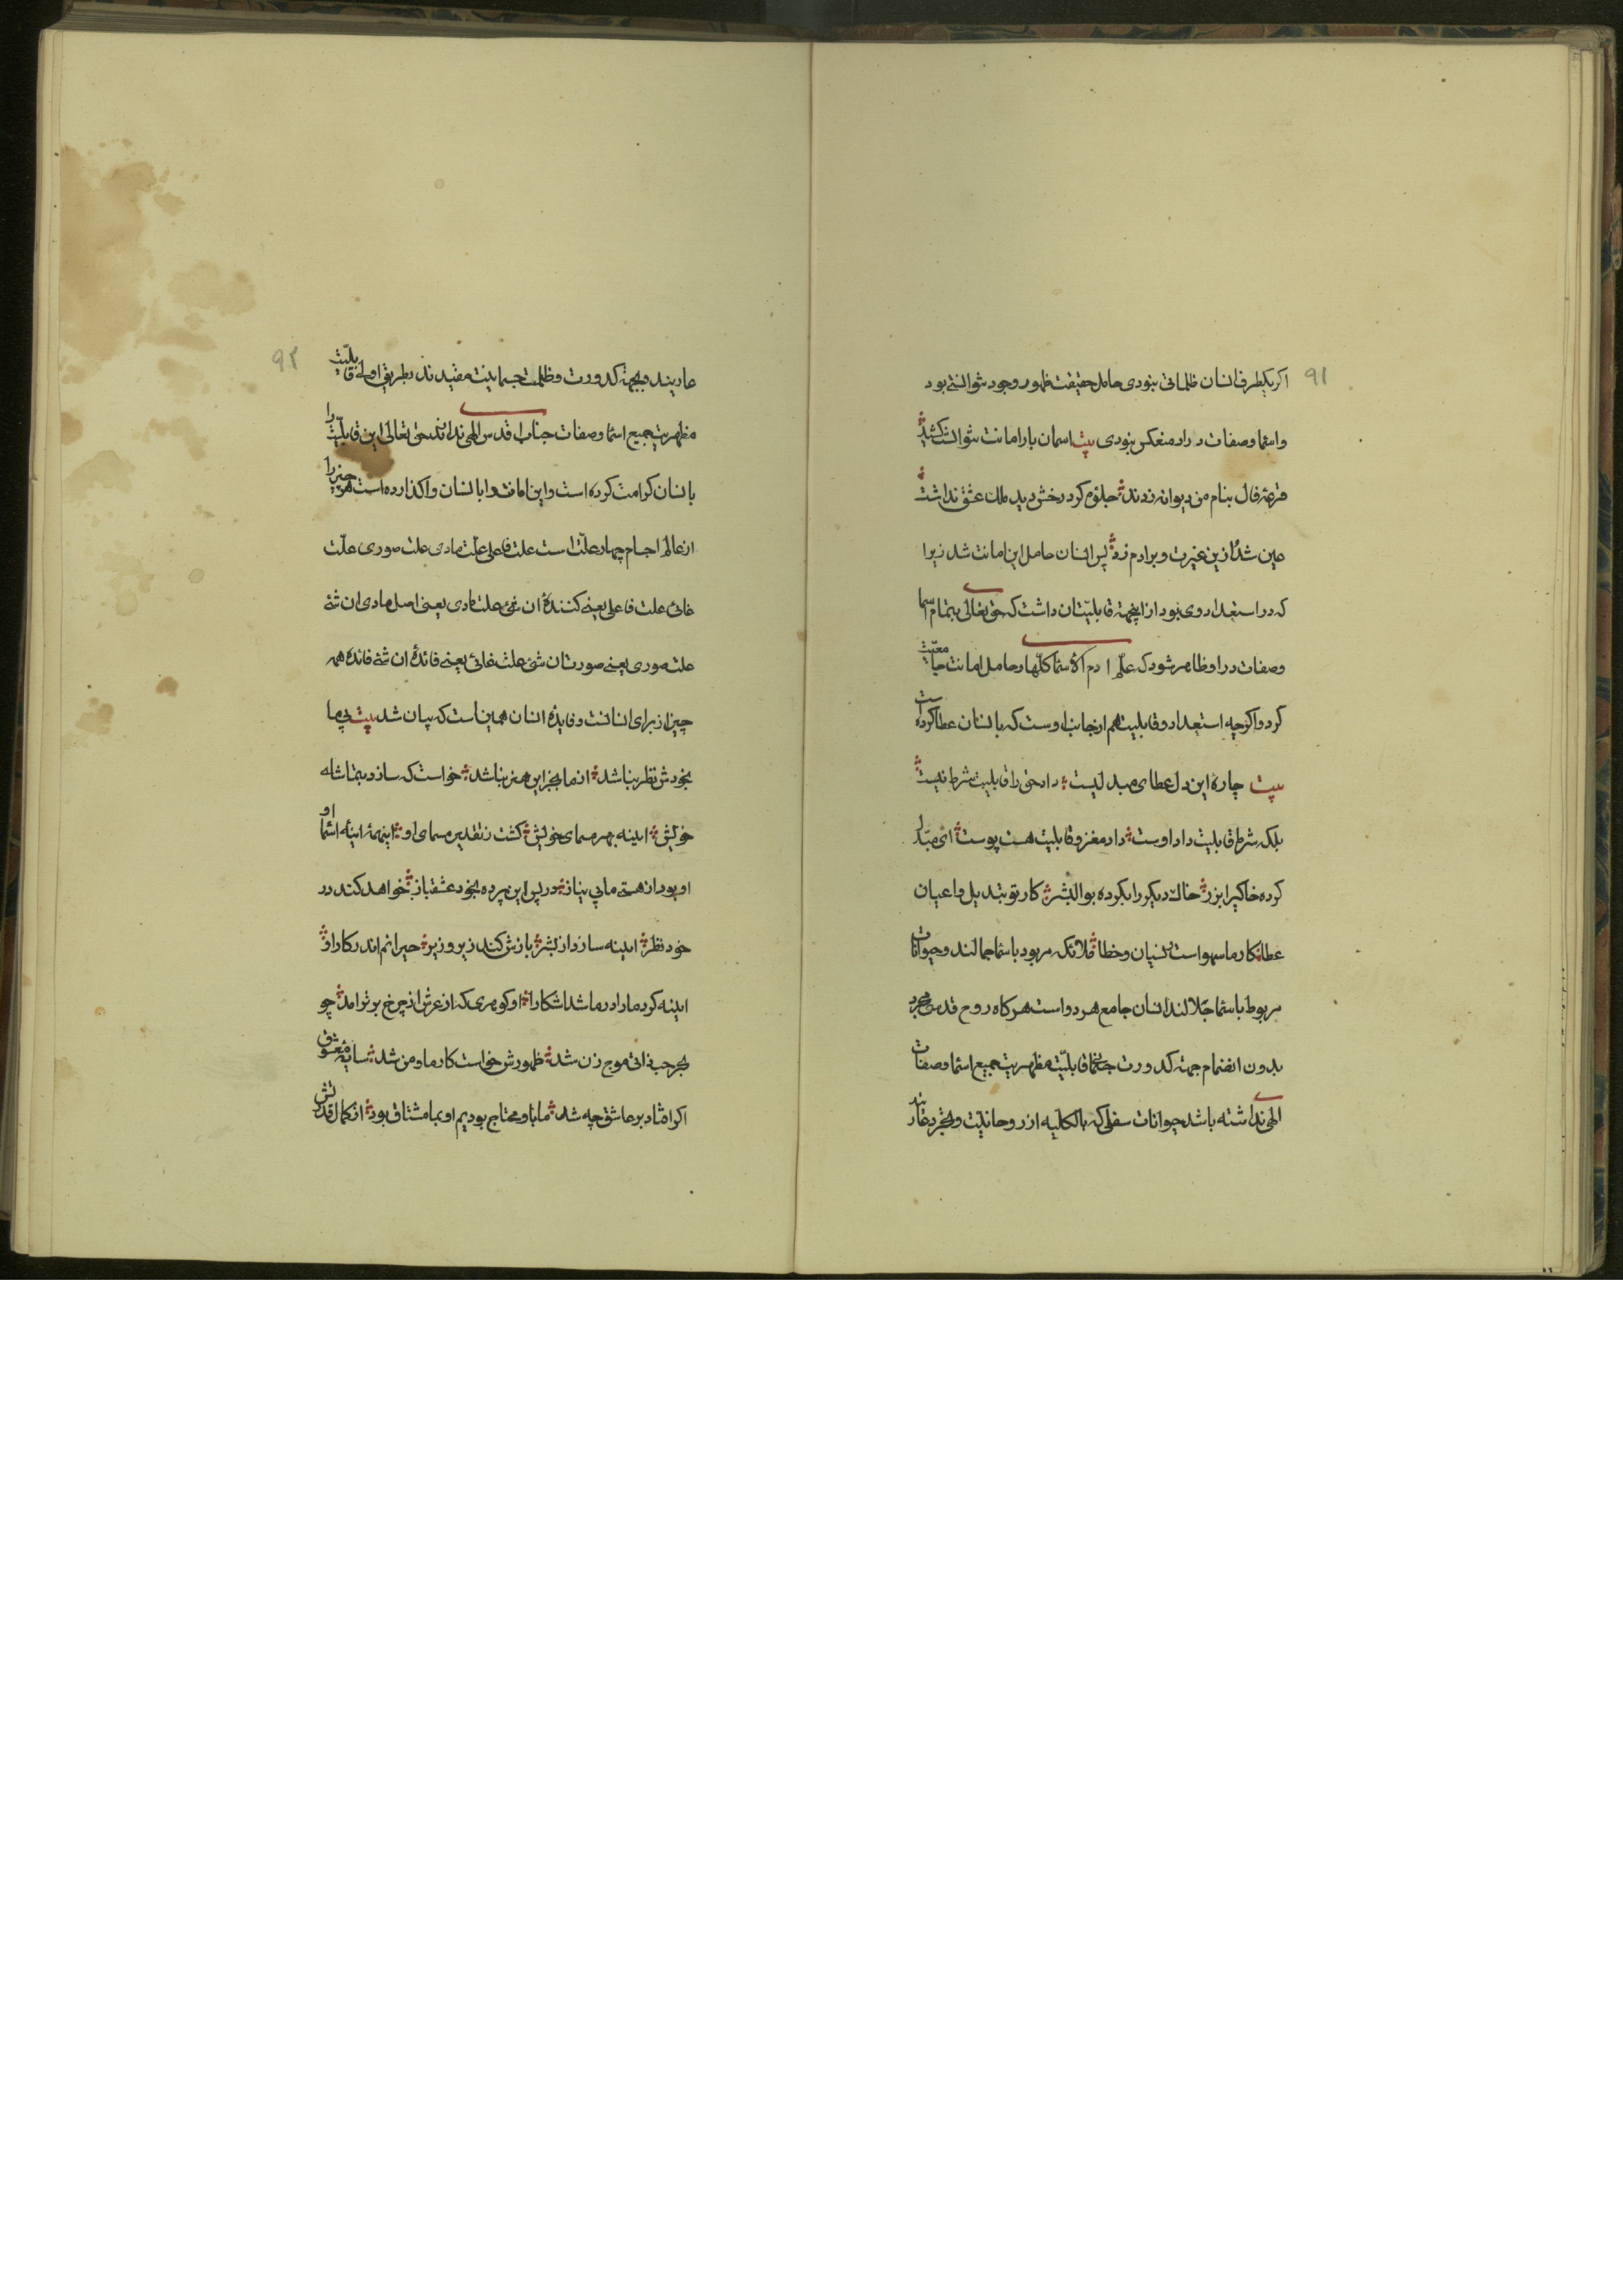 ۹۱
اکر یکطرف انسان ظلمانی نبودی حامل حقیقت ظهور وجود نتوانستی بود
واسما وصفات در او منعکس نبودی بیت اسمان بار امانت نتوانست کشید
قرعهٔ فال بنام من دیوانه زدند جلوه کرد رخش دید ملک عشق نداشت
عین شد ازین غیرت و بر ادم زد پس انسان حامل این امانت شد زیرا
که در استعداد وی بود از اینجهته قابلیّت ان داشت که حق تعالی بتمام اسما
وصفات در او ظاهر شود که علّم ادم الاسما کلّها وحامل امانت جامعیّت
کرد واکرچه استعداد وقابلیت هم از جانب اوست که بانسان عطا کرده است
بیت چاره این دل عطای مبدلیست داد حق را قابلیت شرط نیست
بلکه شرط قابلیت داد اوست داد مغز وقابلیت هست پوست ای مبدّل
کرده خاکیرا بزر خاک دیکر را بکرده بوالبشر کار تو تبدیل واعیان
عطا کار ما سهو است نسیان وخطا ملائکه مربود باسما جمالند وحیوانات
مربوط باسما جلالند انسان جامع هر دو است هرکاه روح قدسی مجرد
بدون انضمام جهته کدورت جسمانی قابلیّت مظهریت جمیع اسما وصفات
الهی نداشته باشد حیوانات سفلی که بالکلیه از روحانیت وتجرد عار
۹۲
عاریند وبجهته کدورت وظلمت جسمانیت مقیدند بطریق اولی قابلیّت
مظهریت جمیع اسما وصفات جناب اقدس الهی ندارند حق تعالی این قابلیّت را
بانسان کرامت کرده است واین امانت را بانسان واکذارده است هر چیز را
از عالم اجسام چهار علّت است علت فاعلی علّت مادی علت صوری علّت
غائی علت فاعلی یعنی کنندهٔ ان شئ علت مادی یعنی اصل مادی ان شئ
علت صوری یعنی صورت ان شئ علت غائی یعنی فائدهٔ ان شئ فائدهٔ همه
چیز از برای انسانست وفایدهٔ انسان همین است که بیان شد بیت بی ما
بخودش نظر نباشد از ما بجز این هنر نباشد خواست که سازد بتماشای
خویش اینه بهر مسمای خویش کشت ز تقدیر مسمای او اینهمه اینهٔ اسمای او
او بود از هستی ما بی نیاز در پس این پرده بخود عشقباز خواهد کند در
خود نظر اینه سازد از بشر بازش کند زیر وزبر حیرانم اندر کار او
اینه کرد ما را در ما شد اشکارا او کوهری که از عرش از چرخ برتر امد چو
بحر حب ذاتی موج زن شد ظهورش خواست کار ما ومن شد سایه معشوق
اکر افتاد بر عاشق چه شد ما باو محتاج بودیم او بما مشتاق بود از کمال قدرتش